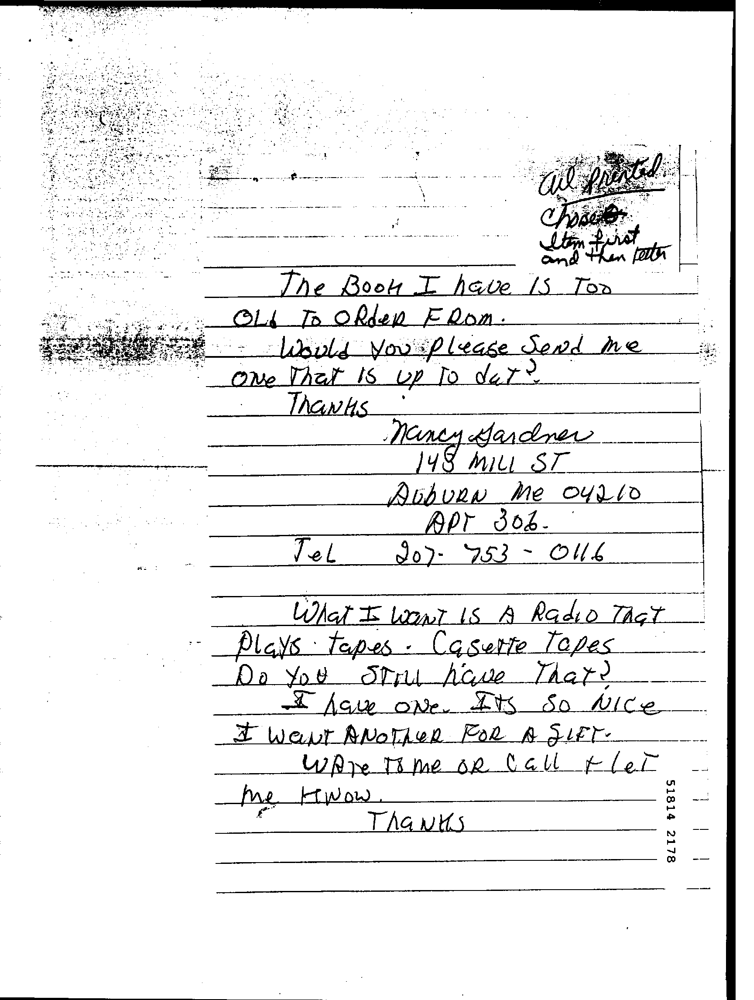 all printed
Chose
Item first
and then letter
The Book I have Is Too
OLd To ORdeR FRom.
Would You Please Send me
one That Is up To daT?
Thanks
Nancy Gardner
148 MILL ST
AubuRN Me 04210
APT 306.
TeL 207-753-0116
What I want IS A Radio That
Plays tapes. Casette Tapes
Do You STILL have That?
I have one. ITs So Nice
I Want ANoTheR FoR A GIFT.
WRITe To me oR Call + leT
me Know.
Thanks
51814 2178